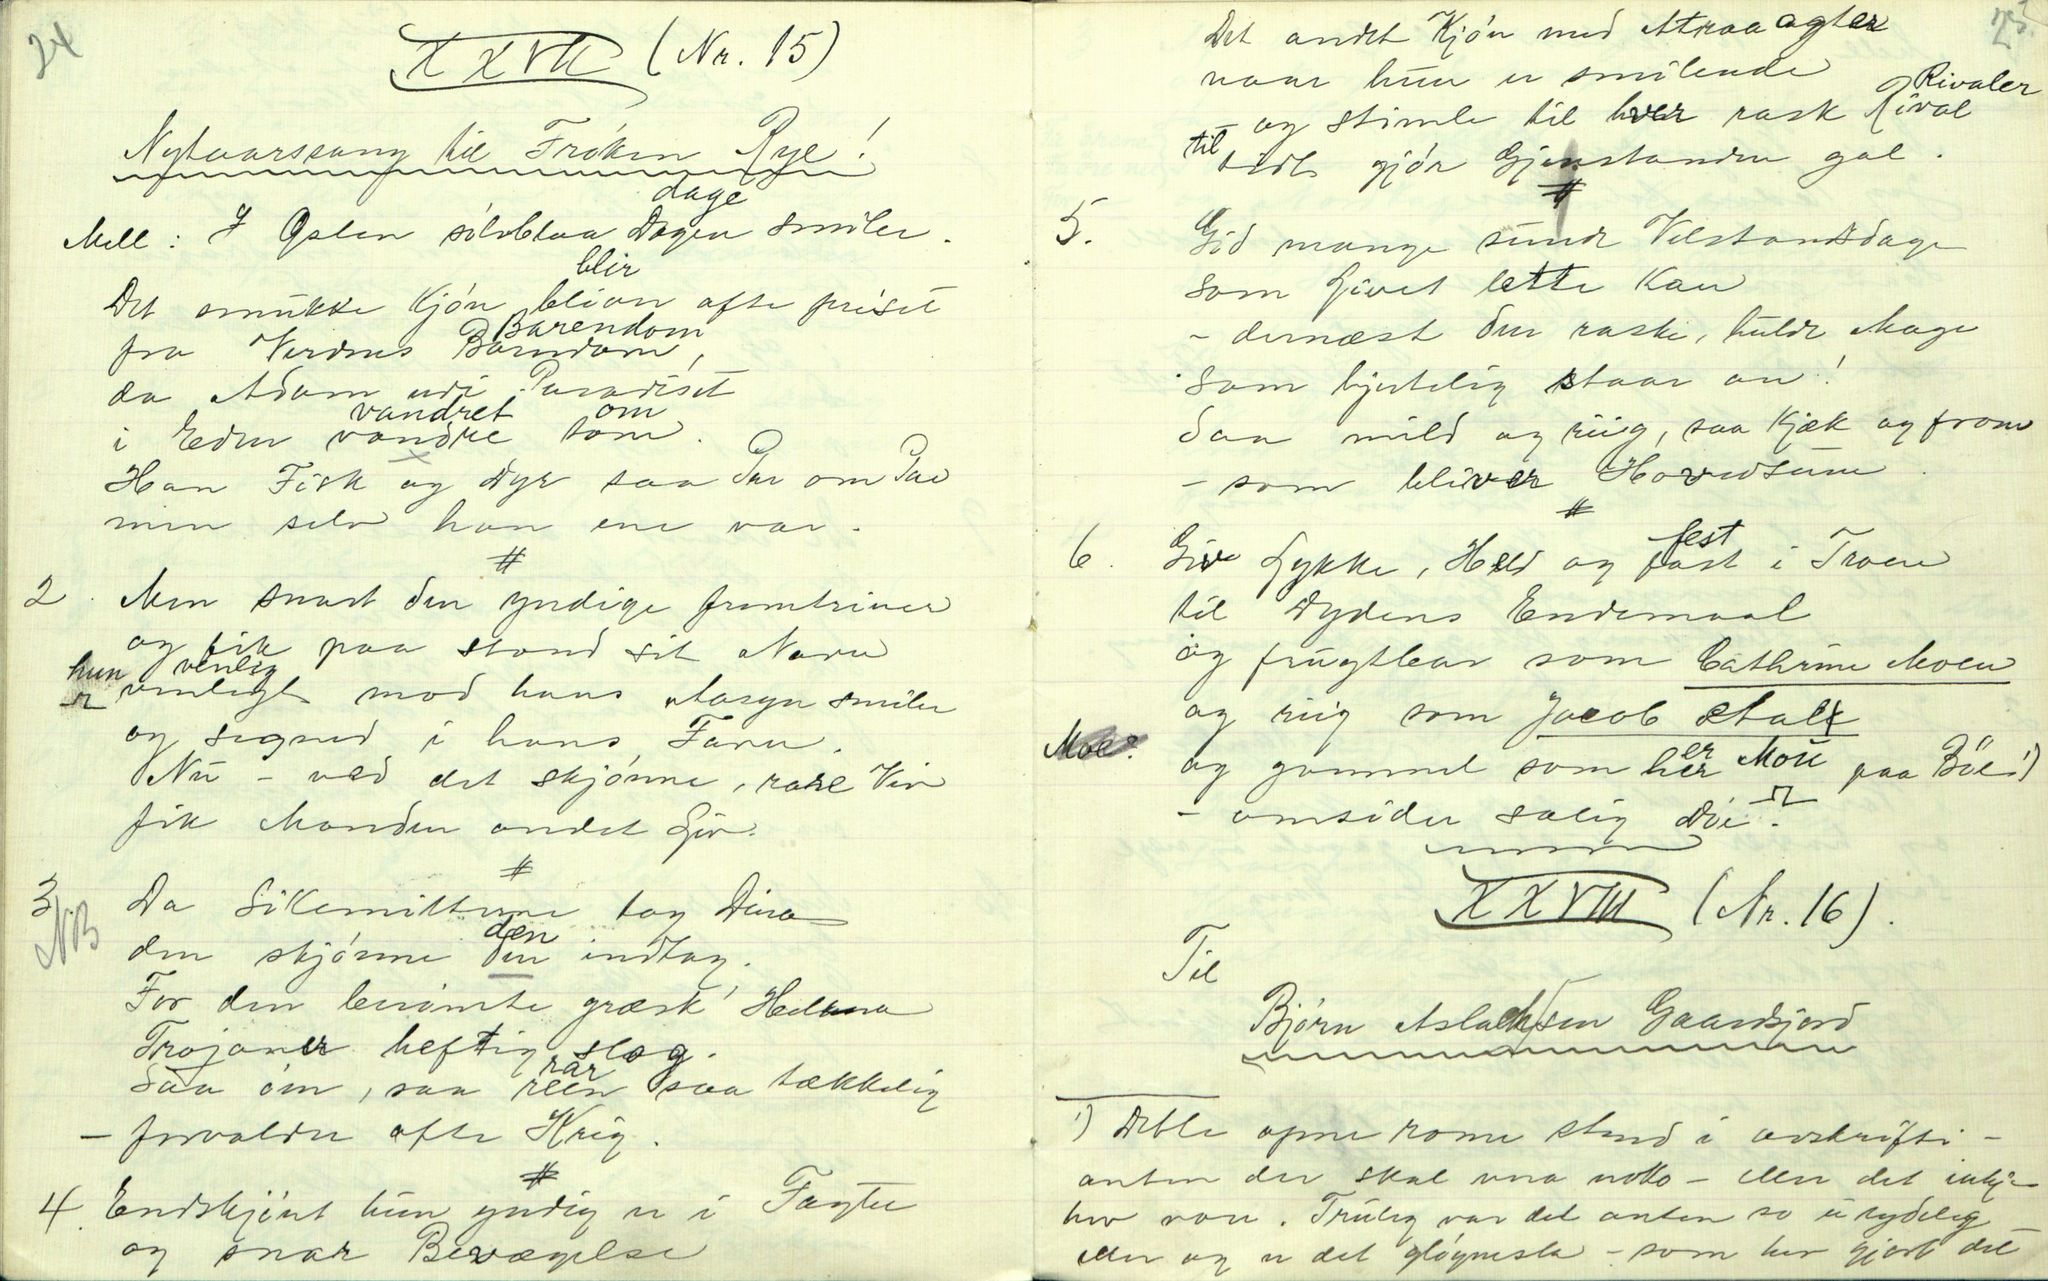 24
XXVII (Nr. 15)
Nytaarssang til Frøken Rye!
dage
Mell: I Østen sølvblaa Dagen smiler.
blir
Det smukke Kjøn bliver ofte priset
Barendom
fra Verdens Barndom,
da Adam udi Paradiset
vandret om
i Eden vandre som.
Han Fisk og Dyr saa Par om Par
men selv han ene var.
#
2. Men snart den yndige fremtriner
og fik paa stand sit Navn
hun venlig
venligt mod hans Aasyn smiler
og segned i hans Favn.
Nu - ved det skjønne, rare Viv
fik Manden andet Liv.
#
3. Da Sikemitterne tog Dina
NB
den
den skjønne den indtog.
For den berømte græsk' Helena
Trojaner heftig slog.
rar
Saa øm, saa reen saa tækkelig
- forvolder ofte Krig.
#
4. Endskjønt hun yndig er i Fagter
og snar Bevægelse
25.
Det andet Kjøn med Attraa agter
naar hun er smilende
Rivaler
- og stimle til hver rask Rival
til
tidt gjør Gjenstanden gal.
#
5. Gid mange sunde Velstandsdage
som Livet lette kan
- dernæst den raske, hulde Mage
som hjertelig staar an!
Saa mild og riig, saa kjæk og from
- som bliver Hovedsum.
#
fest
6. Giv Lykke, Held og fast i Troen
til Dydens Endemaal
og frugtbar som Cathrine Moen
og riig som Jacob Stall
er
Moe? og gammel som her Moü paa Böe 1)
- omsider salig Döe.
XXVIII (Nr. 16).
Til
Bjørn Aslachsen Gaardsjord
1) Dette opne rome stend i avskrifti -
anten der skal vera noko - eller det inkje
hev vore. Truleg var det anten so utydeleg
eller og er det gløymsla - som hev gjort det